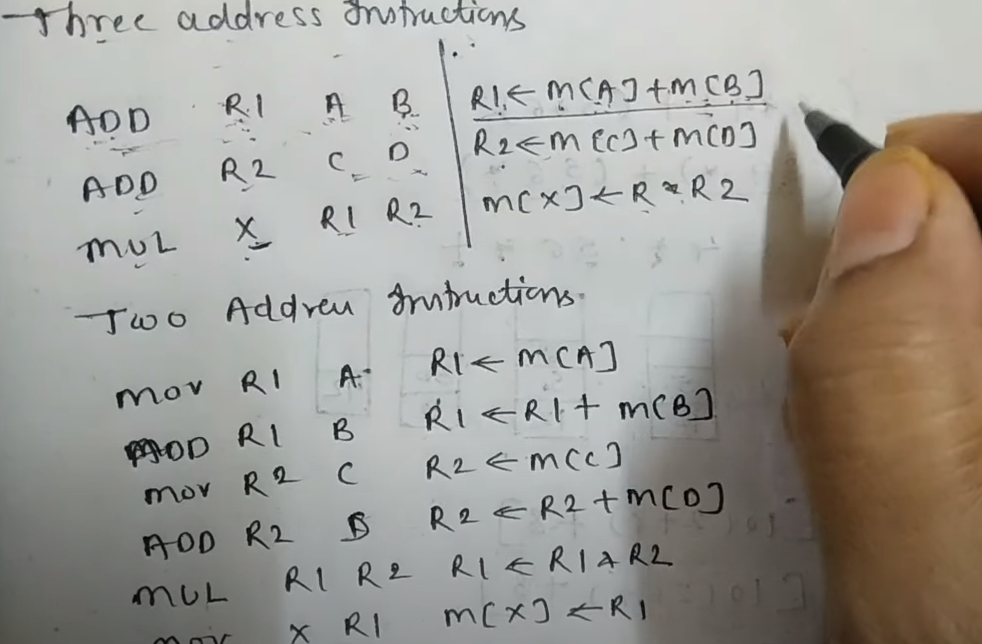 Three address Instructions
ADD R1 A B R1 ← M[A] + M[B]
ADD R2 C D R2 ← M[C] + M[D]
MUL X R1 R2 M[X] ← R * R2
Two Address Instructions
MOV R1 A R1 ← M[A]
ADD R1 B R1 ← R1 + M[B]
MOV R2 C R2 ← M[C]
ADD R2 D R2 ← R2 + M[D]
MUL R1 R2 R1 ← R1 * R2
MOV X R1 M[X] ← R1